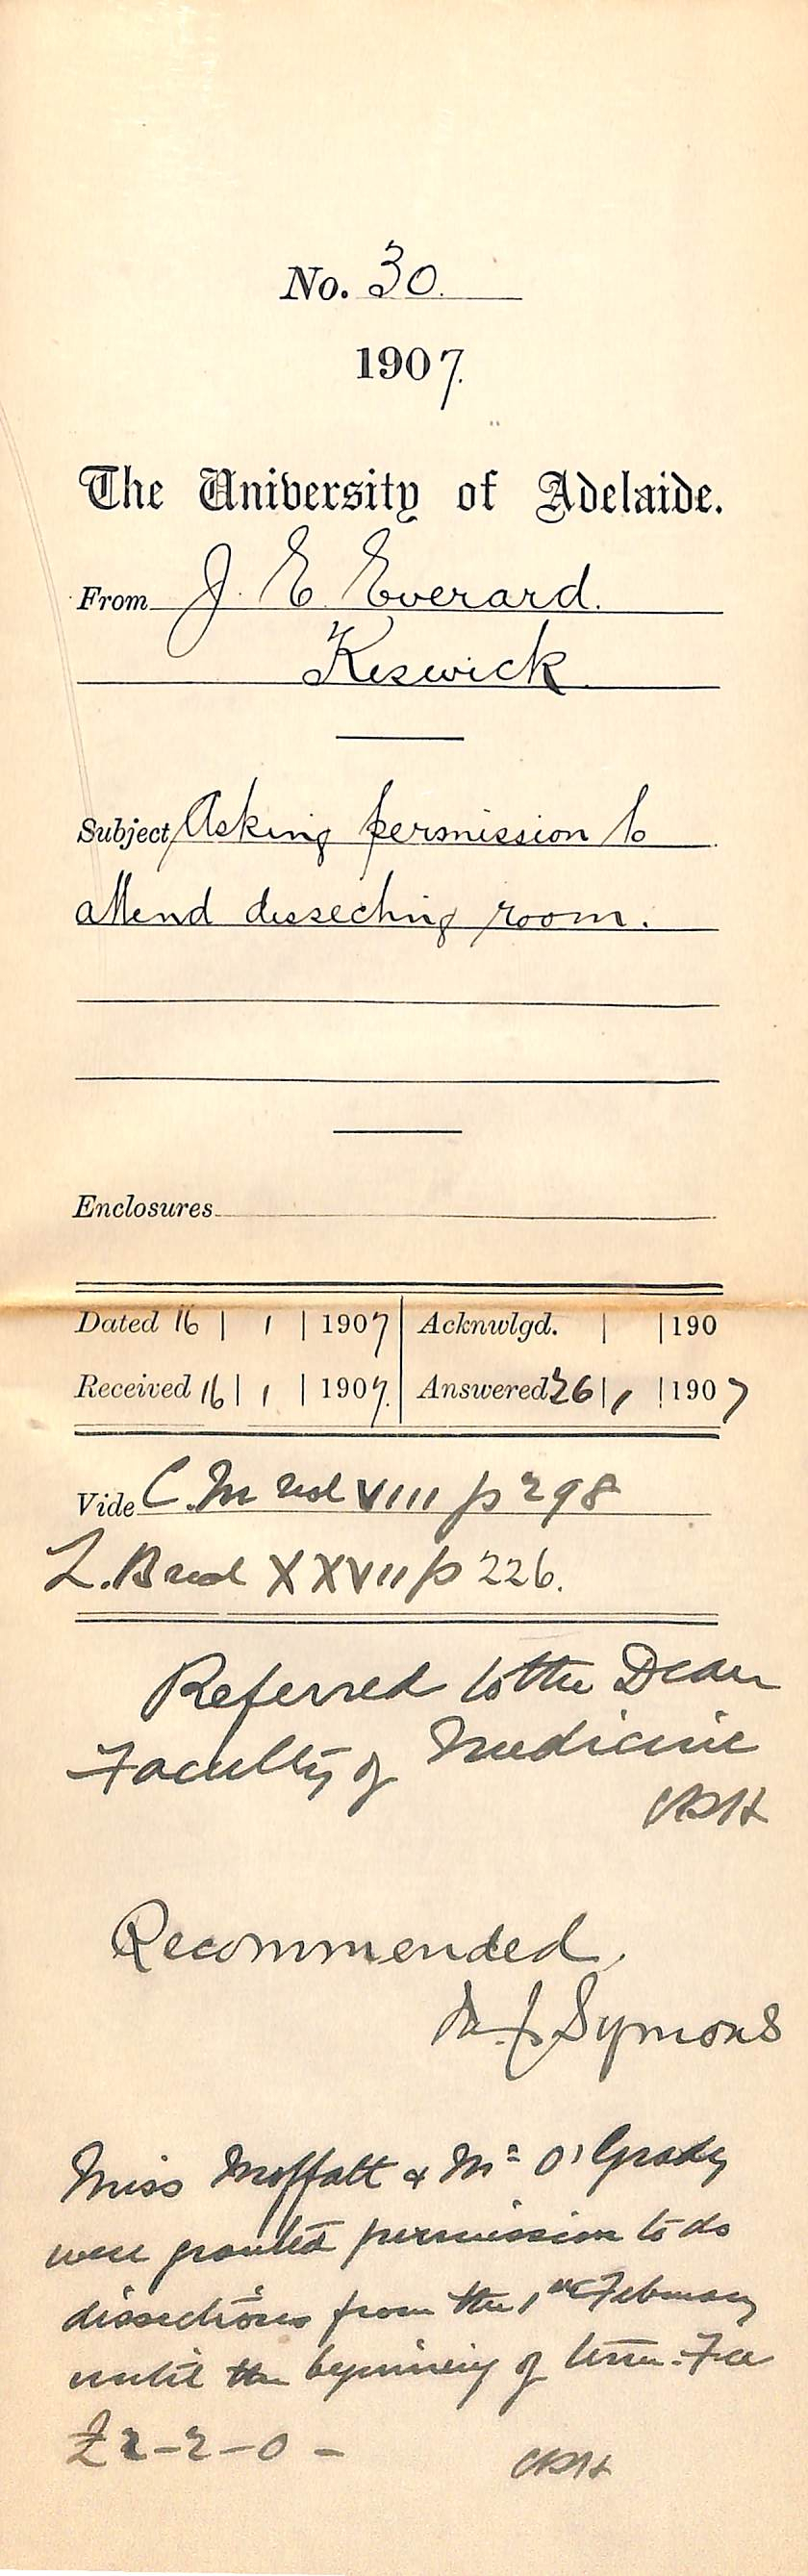 No. 30.
1907.
The University of Adelaide.
From J. E. Everard.
Keswick.
Subject Asking permission to
attend dissecting room.
Enclosures
Dated 16 | 1 | 1907 | Acknwlgd. | | 190
Received 16 | 1 | 1907. | Answered 26 | 1 | 1907
Vide C.M vol VIII p 298
L.B vol XXVII p 226.
Referred to the Dean
Faculty of Medicine
CRH
Recommended.
Symons
Miss Moffatt & Mr O'Grady
were granted permission to do
dissections from the 1st February
until the beginning of term. Fee
£2-2-0-
CRH